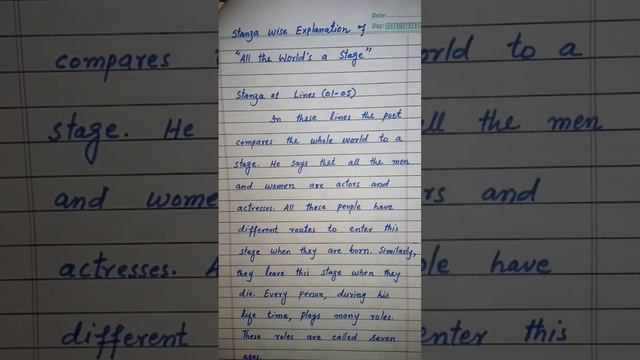 Date:
Day:
Stanza Wise Explanation of
"All the World's a Stage"
Stanza 01 Lines (01-05)
In these lines the poet
compares the whole world to a
stage. He says that all the men
and women are actors and
actresses. All these people have
different routes to enter this
stage when they are born. Similarly,
they leave this stage when they
die. Every person, during his
life time, plays many roles.
These roles are called seven
ages.
compares
stage. He
and wome
actresses. A
different
orld to a
ll the men
rs and
ple have
enter this